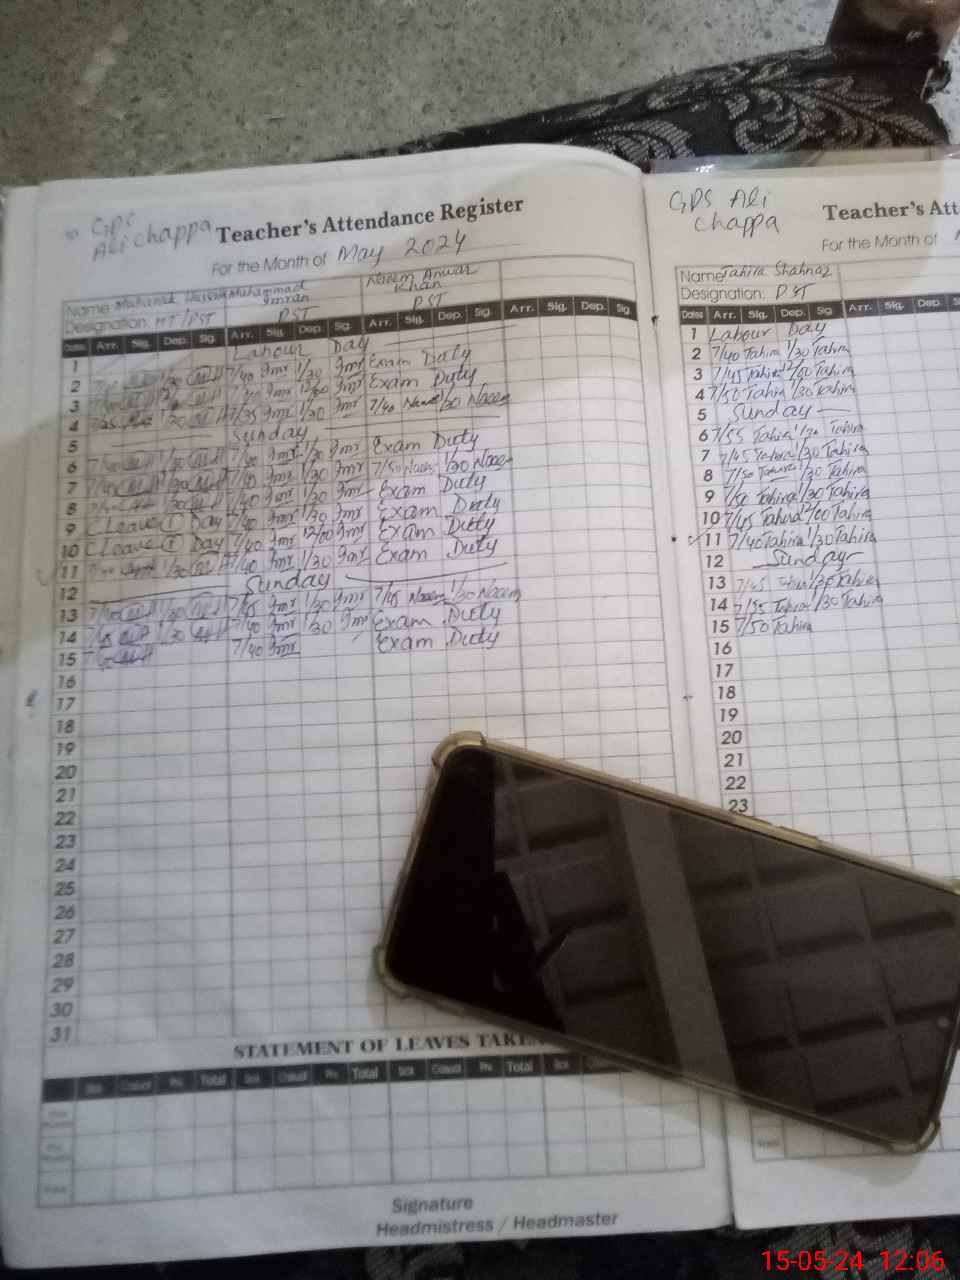 GPS
Ali chappa Teacher's Attendance Register
For the Month of May 2024
Name Muhammad Naeem Anwar
Imran Khan
Designation: HT/PST PST PST
Dates Arr. Sig. Dep. Sig. Arr. Sig. Dep. Sig. Arr. Sig. Dep. Sig. Arr. Sig. Dep. Sig.
1 Labour Day
2 7/40 Imr 1/30 Imr Exam Duty
3 7/40 Imr 12/00 Imr Exam Duty
4 7/35 Imr 1/30 Imr 7/40 Naeem 1/30 Naeem
5 Sunday
6 7/40 Imr 1/30 Imr Exam Duty
7 7/40 Imr 1/30 Imr 7/50 Naeem 1/30 Naeem
8 7/40 Imr 1/30 Imr Exam Duty
9 C Leave (1) Day 7/40 Imr 1/30 Imr Exam Duty
10 C Leave (1) Day 7/40 Imr 12/00 Imr Exam Duty
11 1/30 7/40 Imr 1/30 Imr Exam Duty
12 Sunday
13 7/40 1/30 7/45 Imr 1/30 Imr 7/45 Naeem 1/30 Naeem
14 7/45 1/30 7/40 Imr 1/30 Imr Exam Duty
15 7/40 Imr Exam Duty
16
17
18
19
20
21
22
23
24
25
26
27
28
29
30
31
STATEMENT OF LEAVES TAKE
Sick Casual Priv. Total Sick Casual Priv. Total Sick Casual Priv. Total Sick
Total
Signature
Headmistress / Headmaster
GPS Ali
chappa
Teacher's Att
For the Month of
Name Tahira Shahnaz
Designation: PST
Dates Arr. Sig. Dep. Sig. Arr. Sig. Dep.
1 Labour Day
2 7/40 Tahira 1/30 Tahira
3 7/45 Tahira 12/00 Tahira
4 7/50 Tahira 1/30 Tahira
5 Sunday
6 7/55 Tahira 1/30 Tahira
7 7/45 Tahira 1/30 Tahira
8 7/50 Tahira 1/30 Tahira
9 7/50 Tahira 1/30 Tahira
10 7/45 Tahira 12/00 Tahira
11 7/40 Tahira 1/30 Tahira
12 Sunday
13 7/45 Tahira 1/30 Tahira
14 7/55 Tahira 1/30 Tahira
15 7/50 Tahira
16
17
18
19
20
21
22
23
Total
15-05-24 12:06